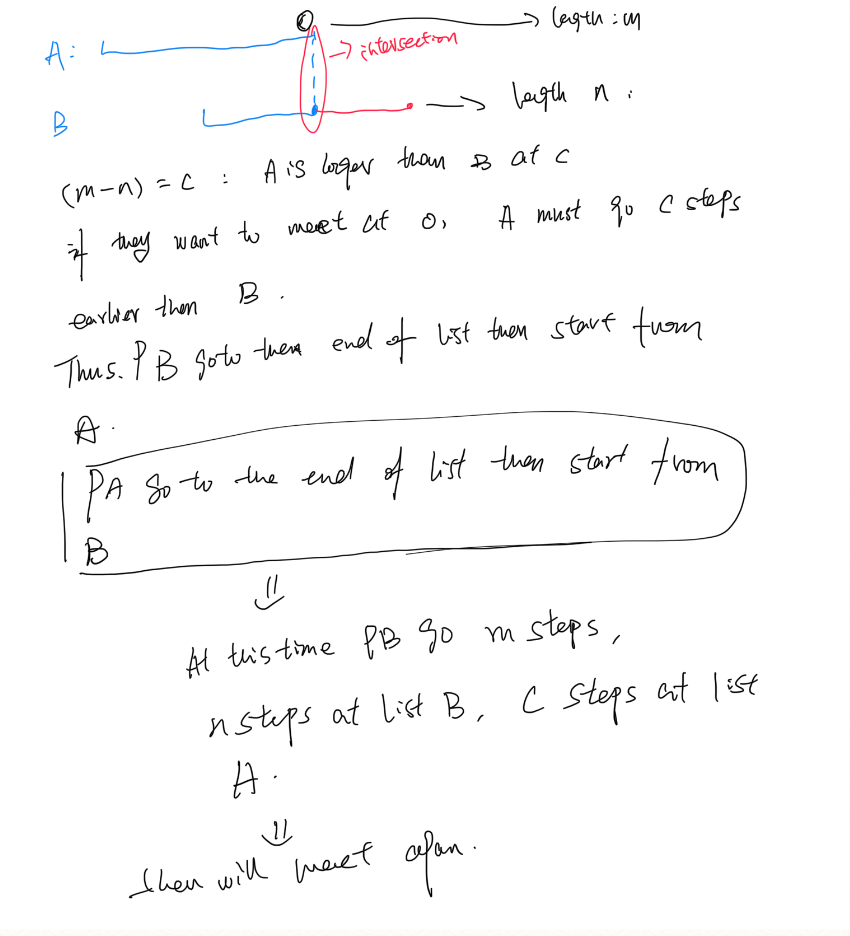 O → length : m
A: → intersection
B → length n :
(m-n) = C : A is loger than B at C
if they want to meet at O, A must go C steps
earlier then B .
Thus. PB go to then end of list then start from
A .
PA go to the end of list then start from
B
⇓
At this time PB go m steps,
n steps at list B, C steps at list
A .
⇓
then will meet again.